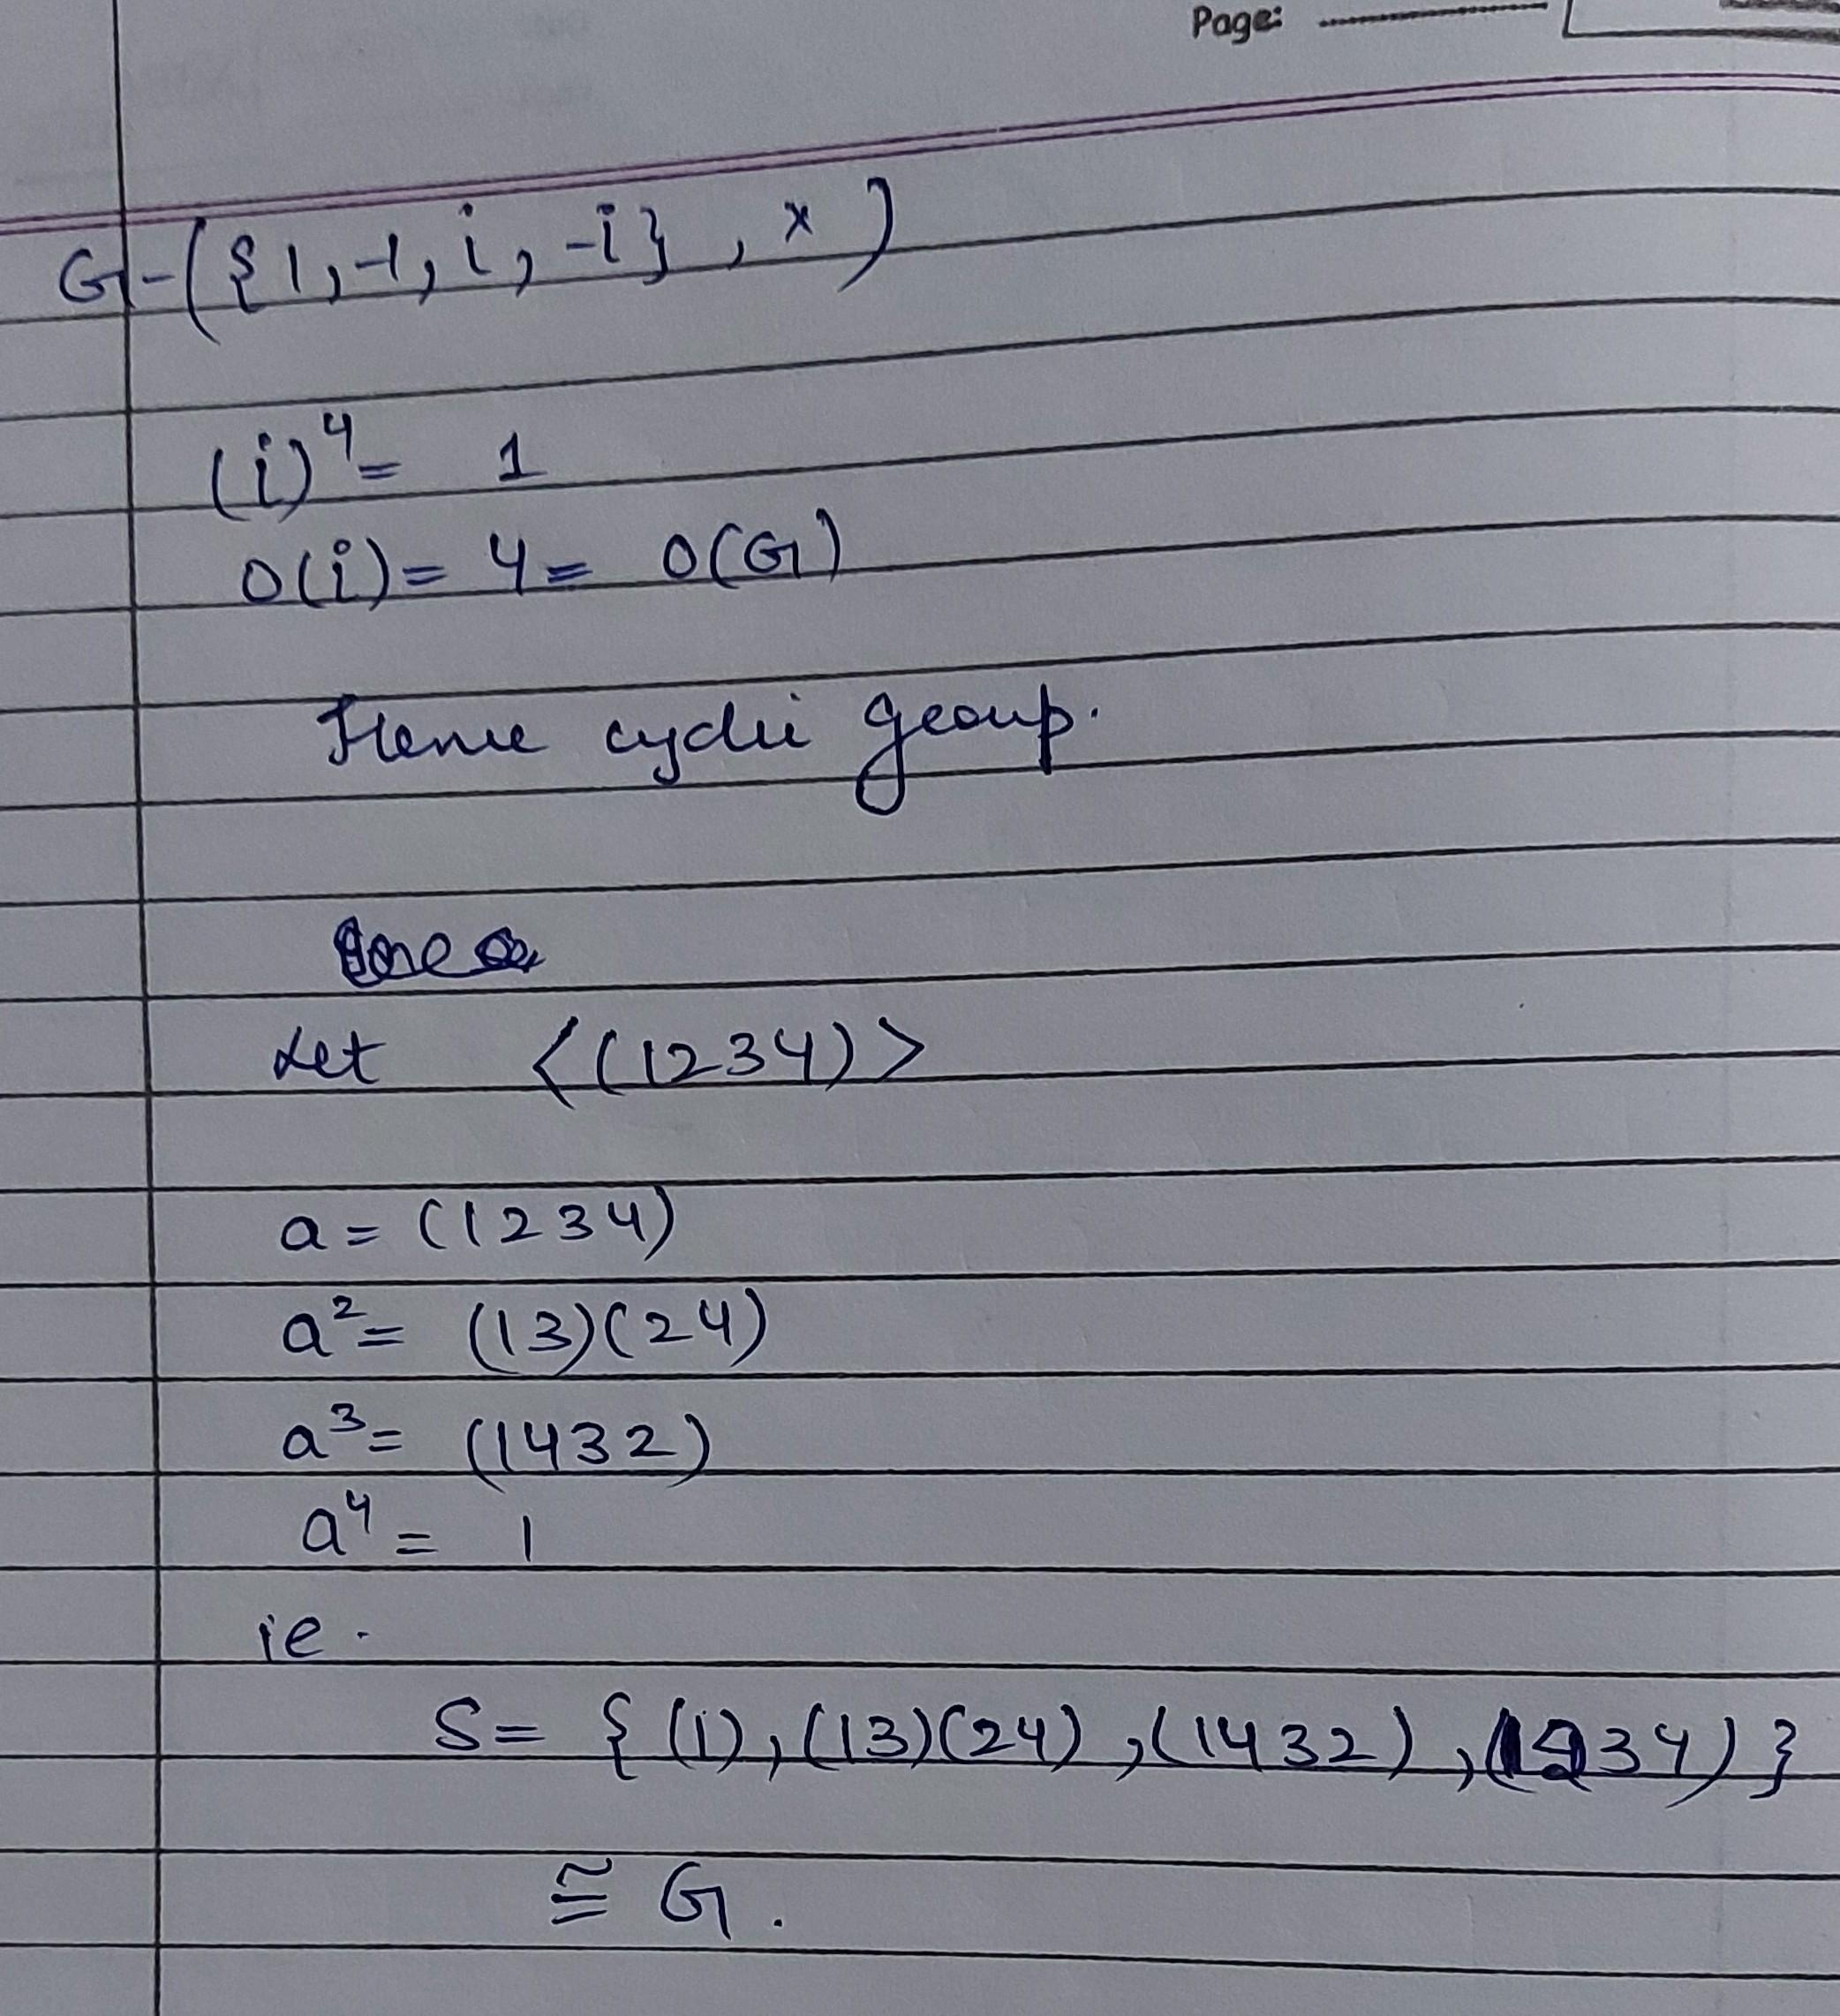 Page:
G-({1,-1,i,-i},×)
(i)⁴= 1
O(i)= 4= O(G)
Hence cyclic group.
Let <(1234)>
a=(1234)
a²= (13)(24)
a³= (1432)
a⁴= 1
ie.
S= {(1),(13)(24),(1432),(1234)}
≅ G.